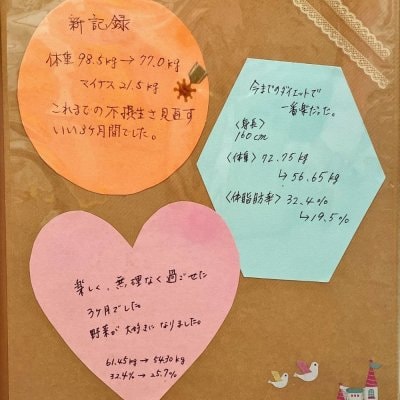 新記録
体重 98.5kg → 77.0kg
マイナス 21.5kg
これまでの不摂生さ見直す
いい3ヶ月間でした。
今までのダイエットで
一番楽だった。
〈身長〉
160cm
〈体重〉 72.75kg
↳ 56.65kg
〈体脂肪率〉 32.4%
↳ 19.5%
楽しく、無理なく過ごせた
3ヶ月でした。
野菜が大好きになりました。
61.45kg → 54.30kg
32.4% → 25.7%